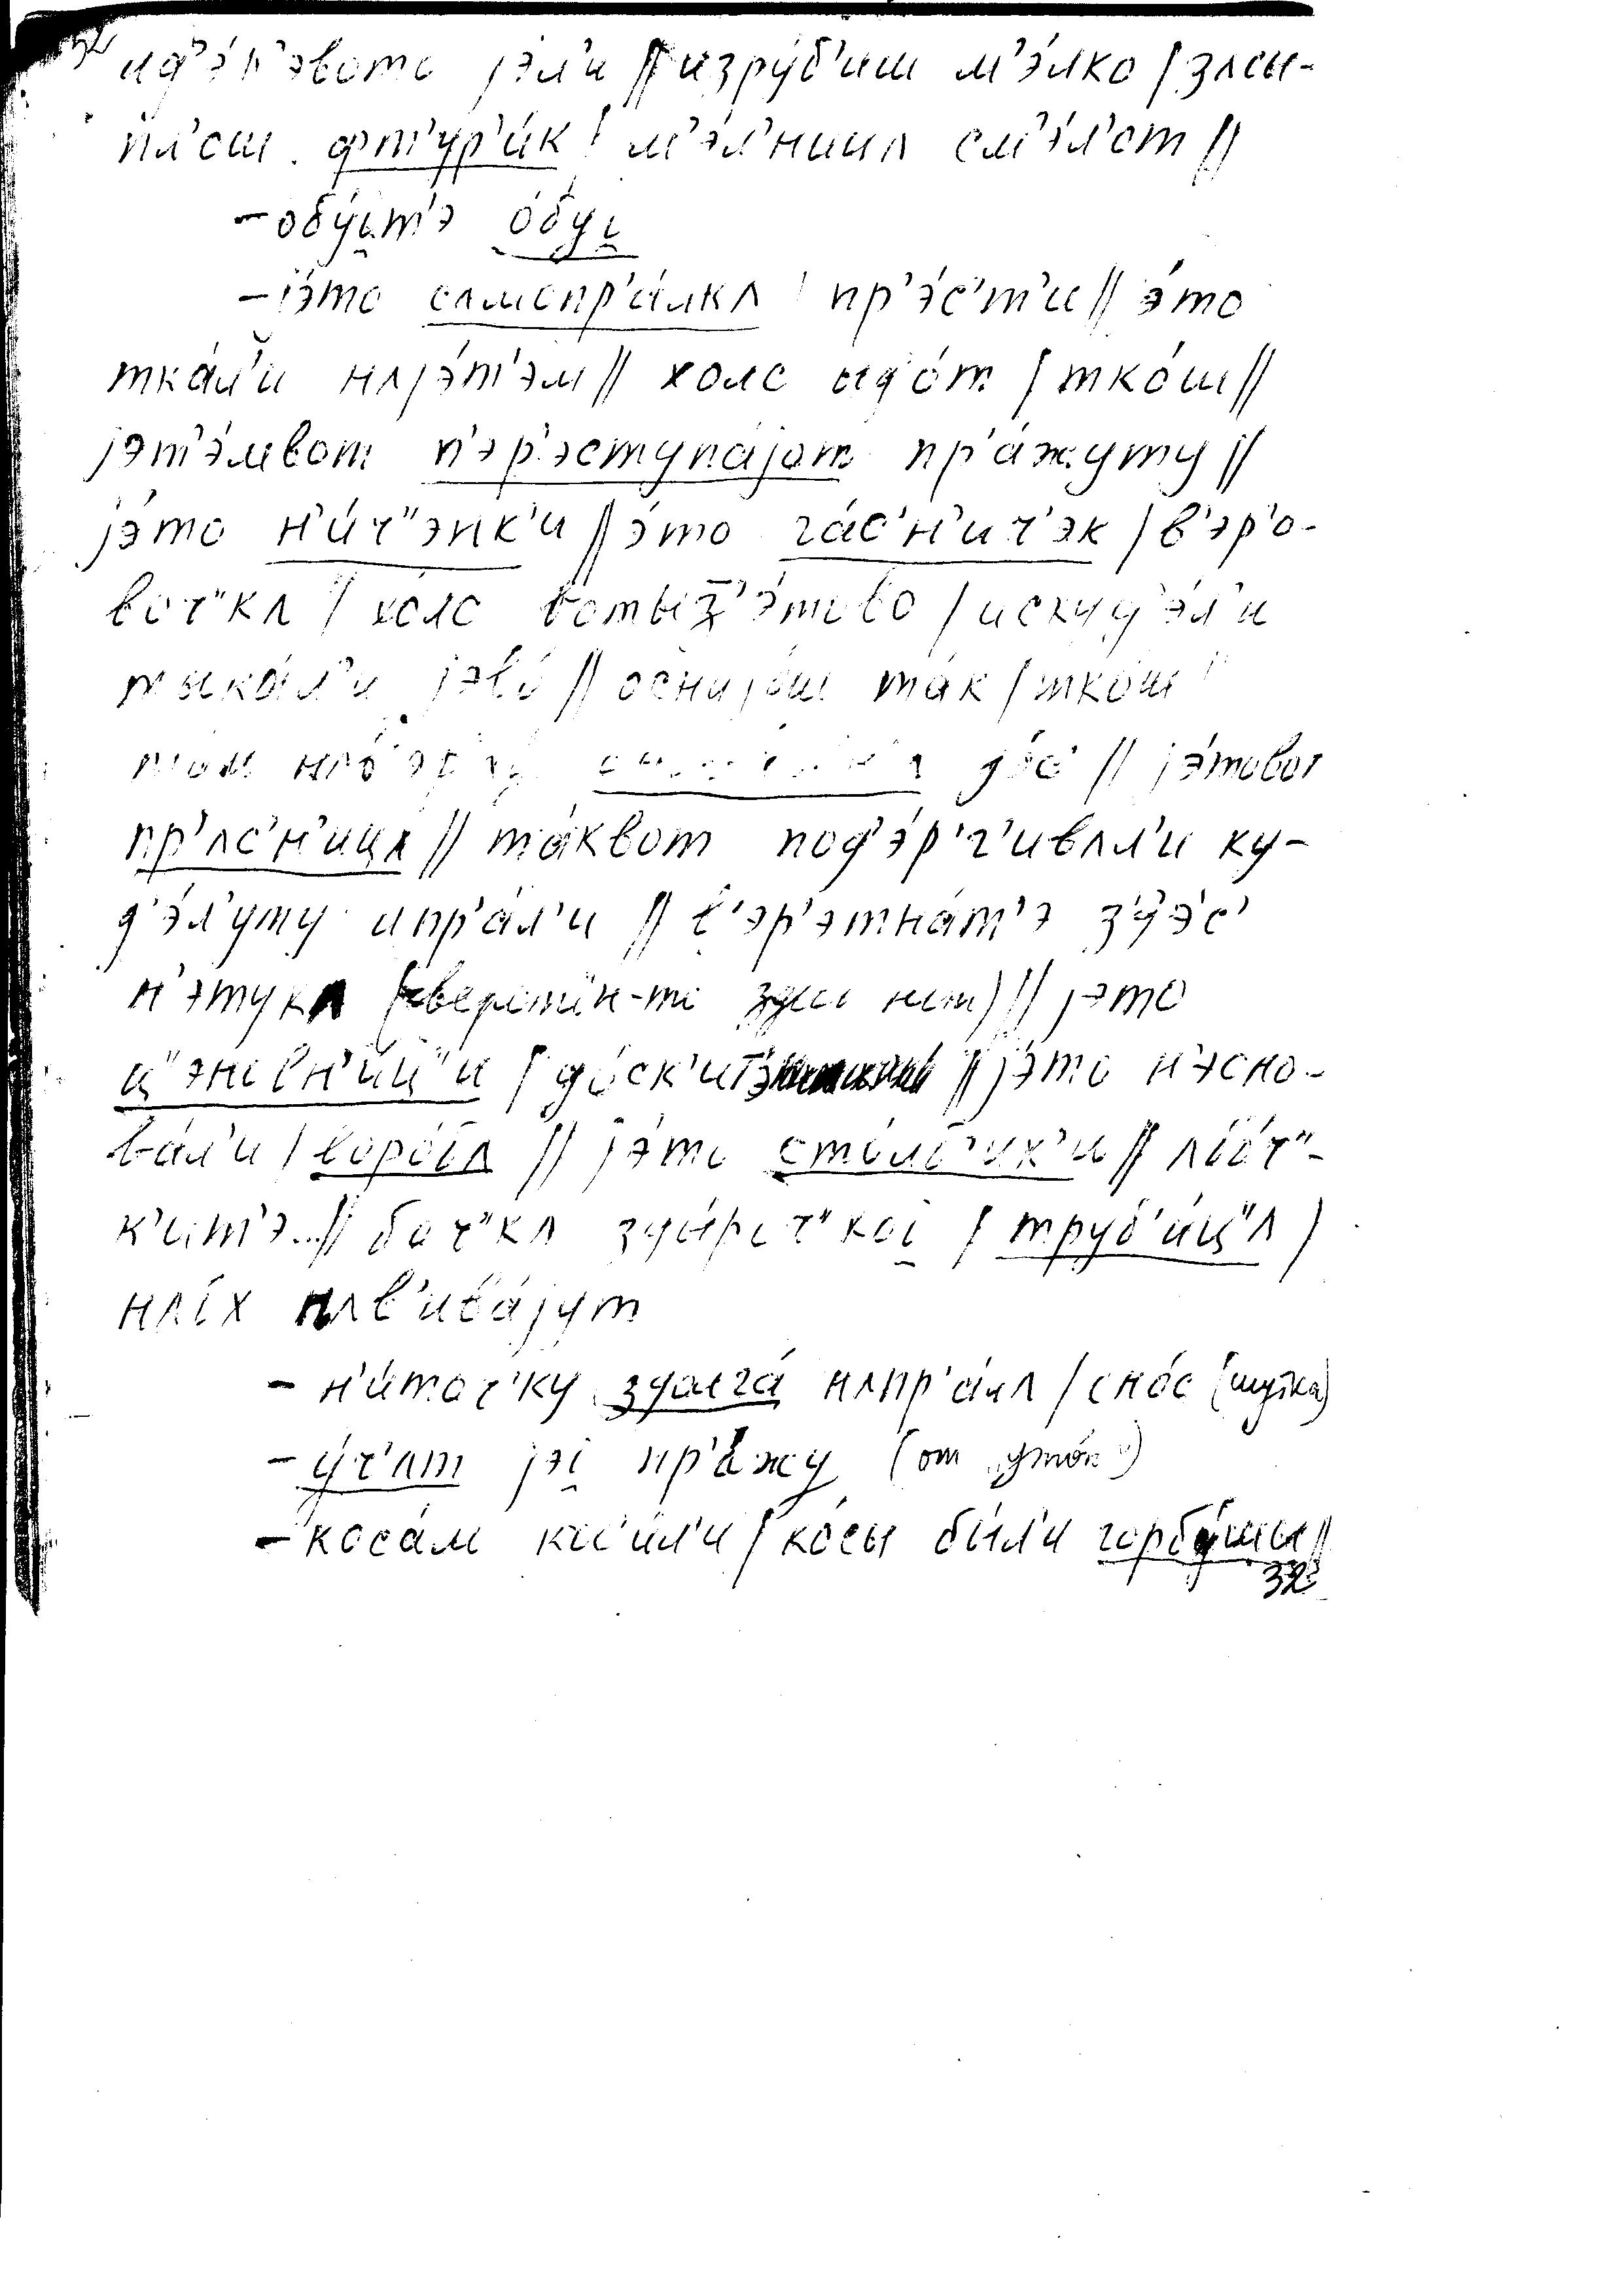 ид’э́р’эвото jэл’и // изру́б’иш м’э́лко / зʌсы-
пʌ’ош фт’ур’и́к / м’э́л’ница см’э́л’от //
– обу́і̯т’э о́буі̯
– іэ́то сʌмопр’а́лкʌ / пр’э́с’т’и // э́то
тка́л’и нʌjэ́т’эм // холс идо́т / тко́ш //
jэт’э́мвот п’эр’эступа́jот пр’а́жуту //
jэ́то н’и́ч”энк’и // э́то га́с’н’ич’эк / в’эр’о-
воч”кʌ / холс вотыз’э́тово / искуд’э́л’и
тыка́л’и jэво́ // оснуjо́ш та́к / тко́ш
jэ́товот
пр’ʌс’н’ицʌ // та́квот под’э́р’г’ивʌл’и ку-
д’э́л’уту ипр’а́л’и // в’эр’этна́т’э з’д’э́с’
н’этукʌ (веретён-то здесь нет) // jэ́то
ц”эновн’и́ц”и / до́ск’итэ // jэ́то н’эсно-
ва́л’и / воро́бʌ // jэ́то сто́лб’ик’и //
к’и́т’э... // боч”кʌ зды́роч”коі̯ / труб’и́ц”ʌ /
нʌіх нʌв’ива́jут
– н’и́точ’ку здолга́ нʌпр’а́лʌ / сно́с (шутка)
– у́ч’ʌт jэі̯ пр’а́жу (от „уто́к“)
– коса́м кос’и́л’и / ко́сы бы́л’и горбу́шы //
32